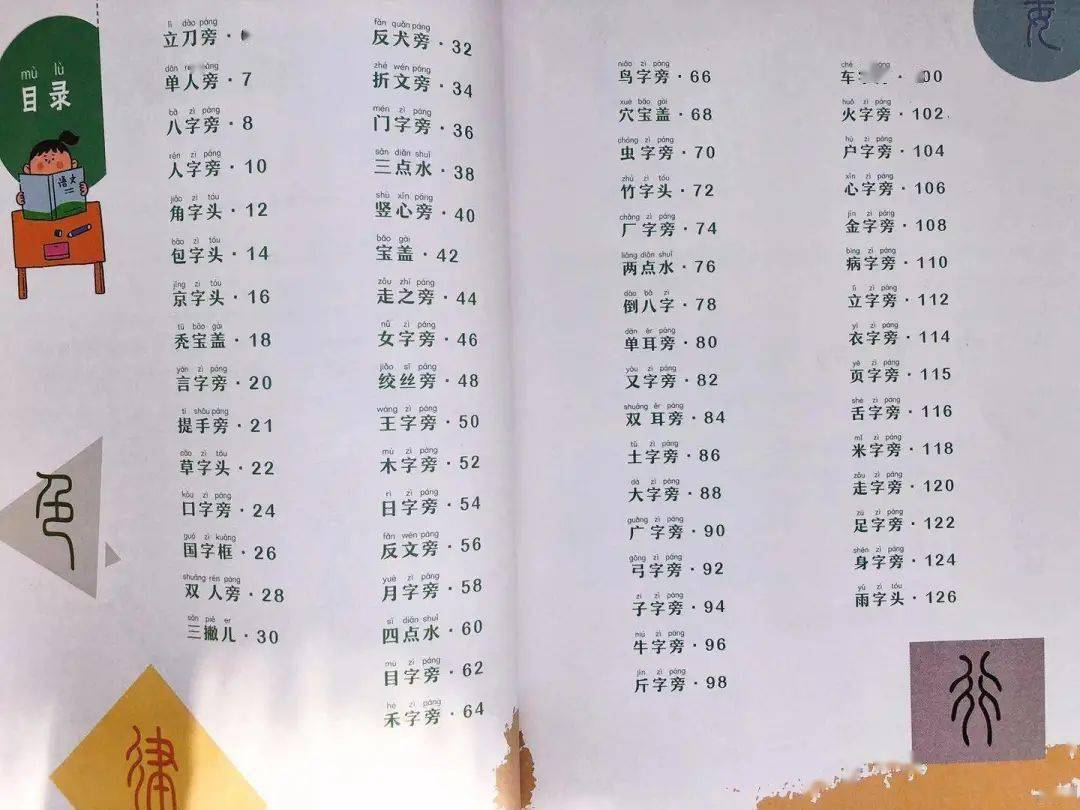 mù lù
目录
语文
lì dāo páng
立刀旁·
单人旁·7
bā zì páng
八字旁·8
rén zì páng
人字旁·10
jiǎo zì tóu
角字头·12
bāo zì tóu
包字头·14
jīng zì tóu
京字头·16
tū bǎo gài
秃宝盖·18
yán zì páng
言字旁·20
tí shǒu páng
提手旁·21
cǎo zì tóu
草字头·22
kǒu zì páng
口字旁·24
guó zì kuàng
国字框·26
shuāng rén páng
双人旁·28
sān piě er
三撇儿·30
fǎn quǎn páng
反犬旁·32
zhé wén páng
折文旁·34
mén zì páng
门字旁·36
sān diǎn shuǐ
三点水·38
shù xīn páng
竖心旁·40
bǎo gài
宝盖·42
zǒu zhī páng
走之旁·44
nǚ zì páng
女字旁·46
jiǎo sī páng
绞丝旁·48
wáng zì páng
王字旁·50
mù zì páng
木字旁·52
rì zì páng
日字旁·54
fǎn wén páng
反文旁·56
yuè zì páng
月字旁·58
sì diǎn shuǐ
四点水·60
mù zì páng
目字旁·62
hé zì páng
禾字旁·64
niǎo zì páng
鸟字旁·66
xué bǎo gài
穴宝盖·68
chóng zì páng
虫字旁·70
zhú zì tóu
竹字头·72
chǎng zì páng
厂字旁·74
liǎng diǎn shuǐ
两点水·76
dào bā zì
倒八字·78
dān ěr páng
单耳旁·80
yòu zì páng
又字旁·82
shuāng ěr páng
双耳旁·84
tǔ zì páng
土字旁·86
dà zì páng
大字旁·88
guǎng zì páng
广字旁·90
gōng zì páng
弓字旁·92
zǐ zì páng
子字旁·94
niú zì páng
牛字旁·96
jīn zì páng
斤字旁·98
车
huǒ zì páng
火字旁·102
hù zì páng
户字旁·104
xīn zì páng
心字旁·106
jīn zì páng
金字旁·108
bìng zì páng
病字旁·110
lì zì páng
立字旁·112
yī zì páng
衣字旁·114
yè zì páng
页字旁·115
shé zì páng
舌字旁·116
mǐ zì páng
米字旁·118
zǒu zì páng
走字旁·120
zú zì páng
足字旁·122
shēn zì páng
身字旁·124
yǔ zì tóu
雨字头·126
色
律
行